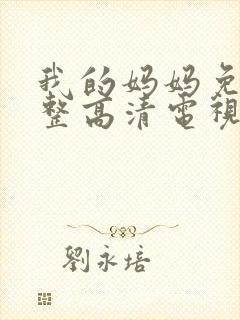 我的妈妈免
整高清電視
劉永培